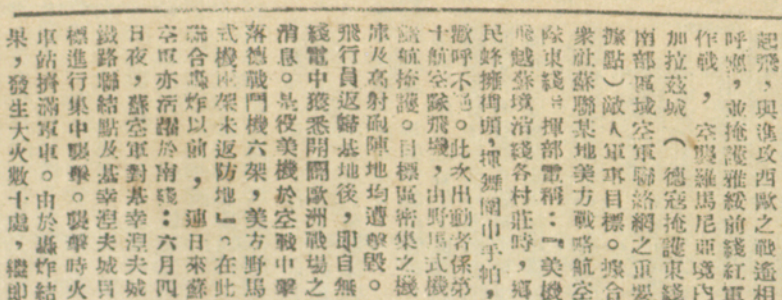 起飛，與進攻西歐之戰遙相
呼應，並掩護雅緩前綫紅軍
作戰，空襲羅馬尼亞境內
加拉茲城（德寇掩護東綫
南部區域空軍聯絡網之重要
據點）敵人軍事目標。據合
衆社蘇聯某地美方戰略航空
隊東綫指揮部電稱：『美機
飛越蘇境沿綫各村莊時，鄉
民蜂擁街頭，揮舞圍巾手帕，
歡呼不絕。此次出動者係第
十航空隊飛機，由野馬式機
護航掩護。目標區密集之機
庫及高射砲陣地均遭擊毀。
飛行員返歸基地後，即自無
綫電中獲悉開闢歐洲戰場之
消息。是役美機於空戰中擊
落德戰鬥機六架，美方野馬
式機兩架未返防地』。在此
聯合轟炸以前，連日來蘇
空軍亦活躍於南綫：六月四
日夜，蘇空軍對基幸湼夫城
鐵路聯結點及基幸湼夫城目
標進行集中襲擊。襲擊時火
車站擠滿軍車。由於轟炸結
果，發生大火數十處，繼即